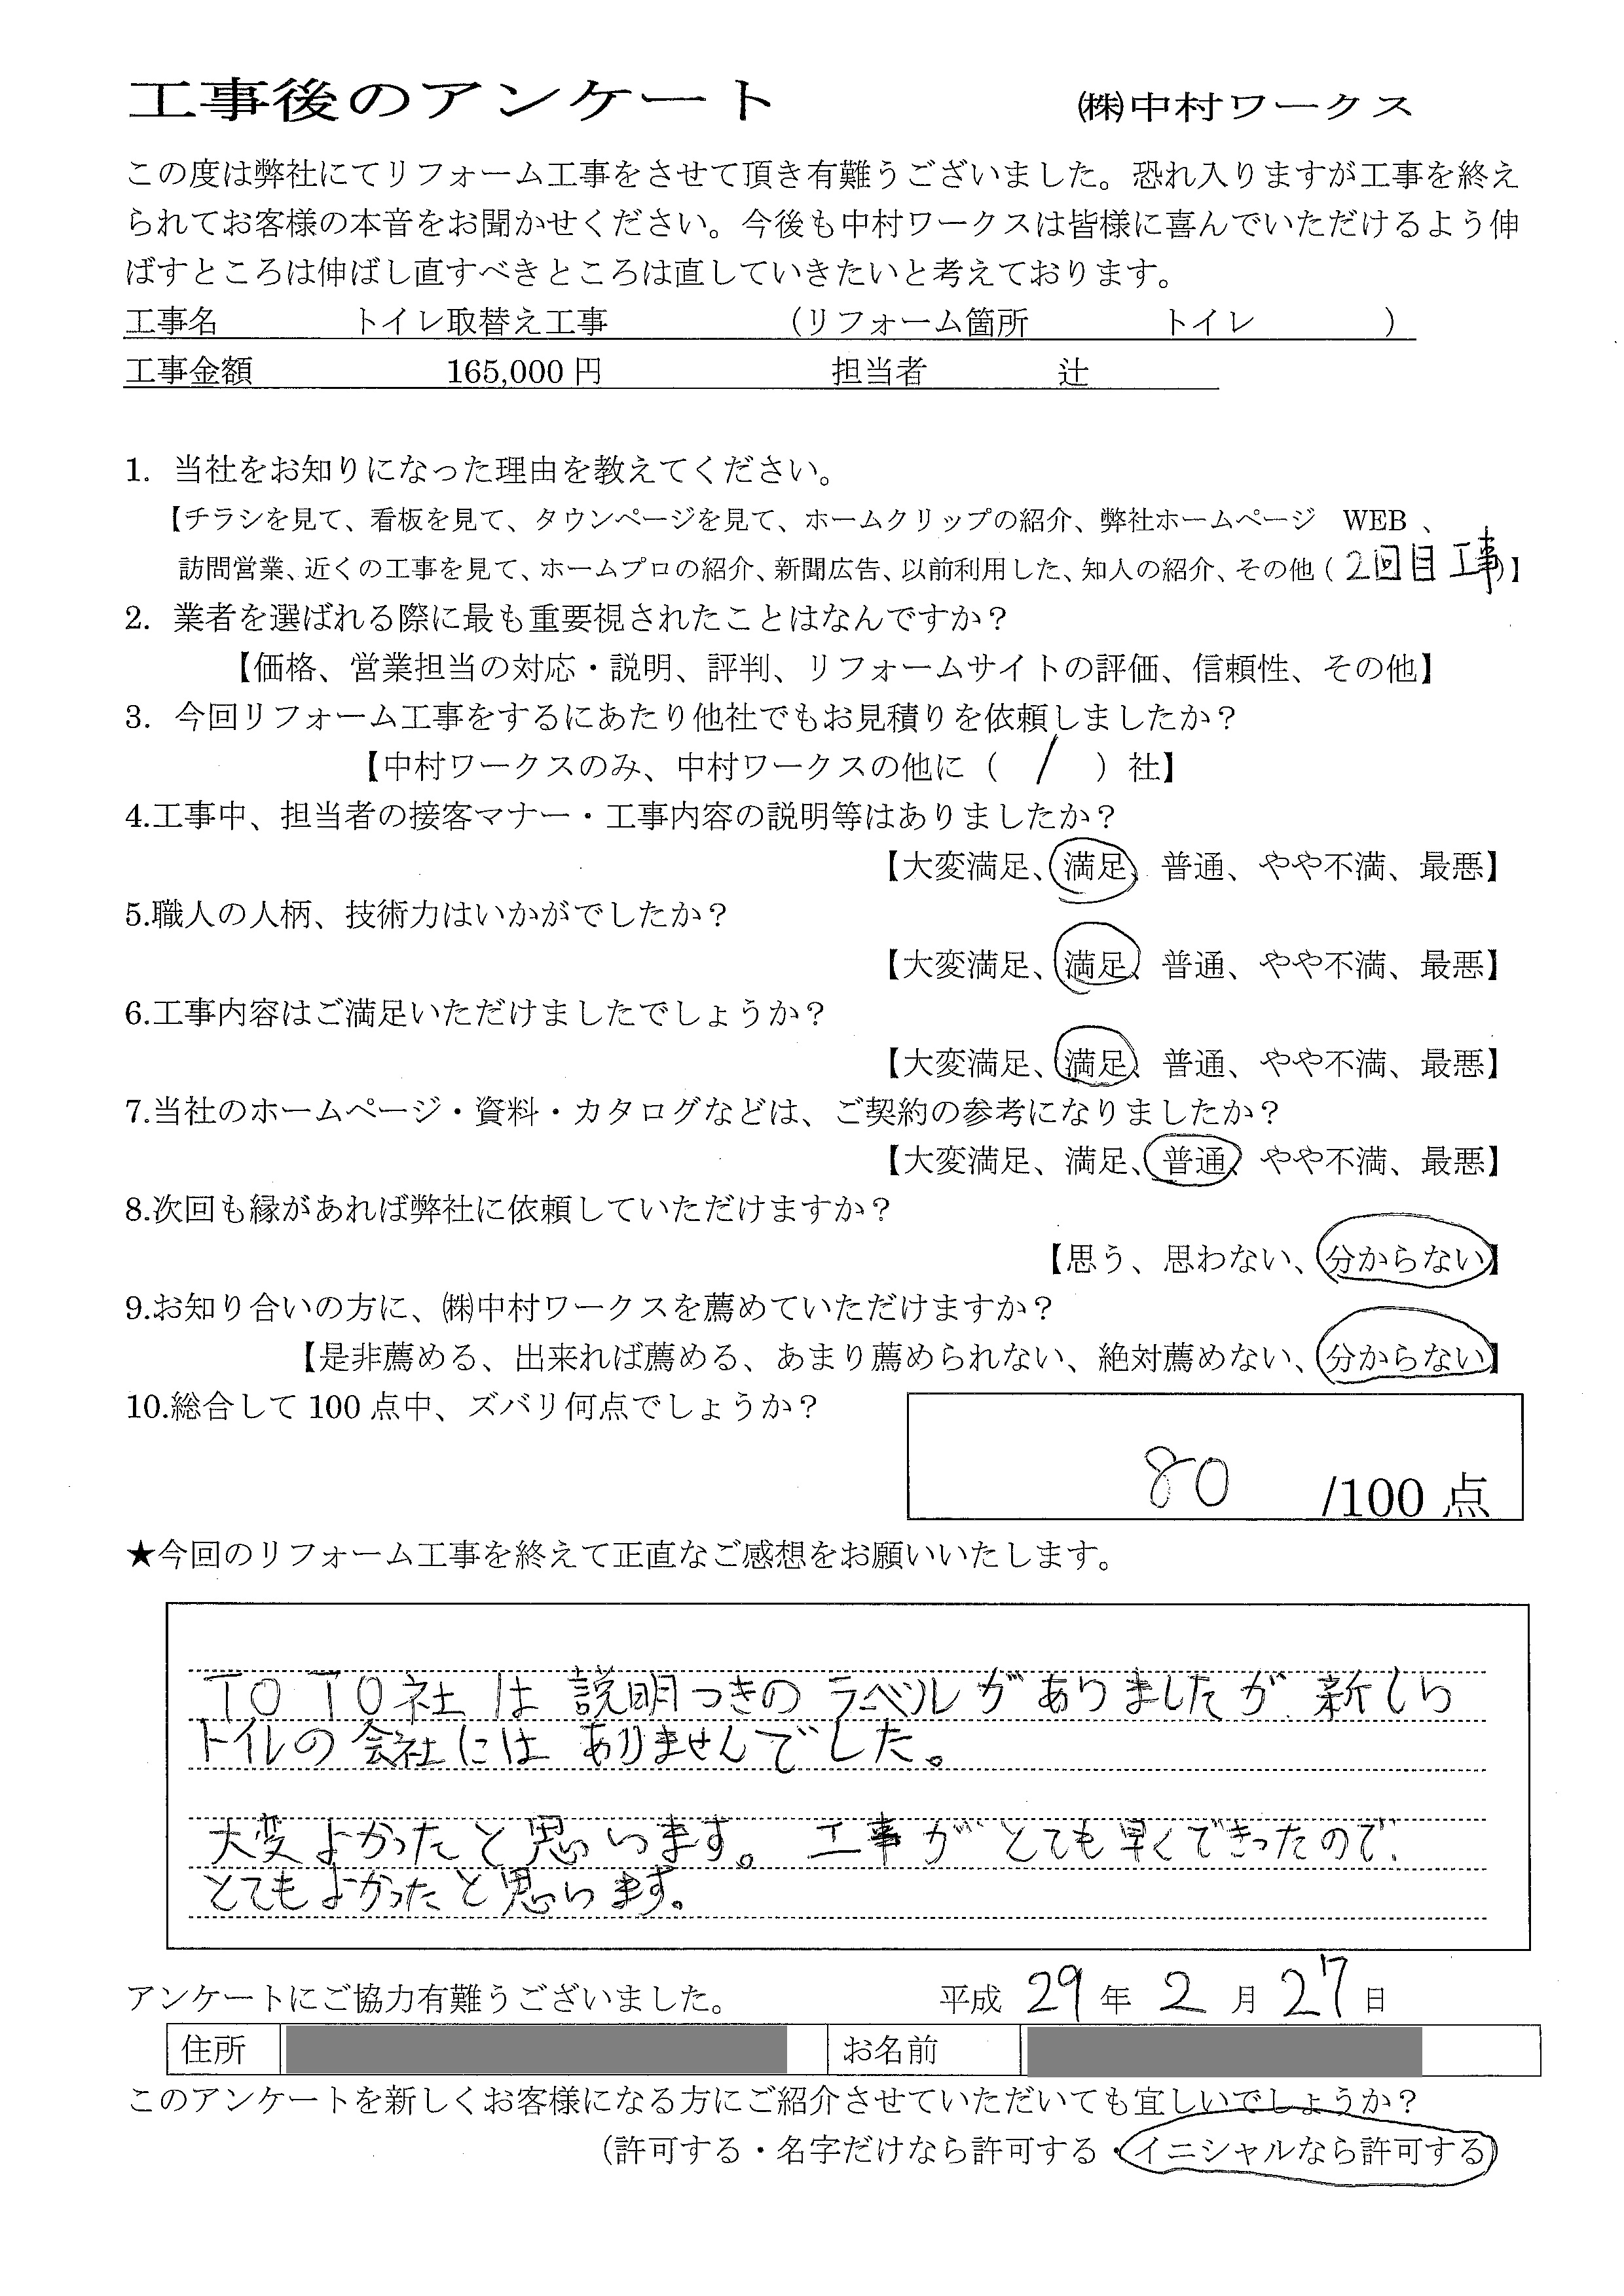 工事後のアンケート ㈱中村ワークス
この度は弊社にてリフォーム工事をさせて頂き有難うございました。恐れ入りますが工事を終え
られてお客様の本音をお聞かせください。今後も中村ワークスは皆様に喜んでいただけるよう伸
ばすところは伸ばし直すべきところは直していきたいと考えております。
工事名 トイレ取替え工事 (リフォーム箇所 トイレ )
工事金額 165,000 円 担当者 辻
1. 当社をお知りになった理由を教えてください。
【チラシを見て、看板を見て、タウンページを見て、ホームクリップの紹介、弊社ホームページ WEB 、
訪問営業、近くの工事を見て、ホームプロの紹介、新聞広告、以前利用した、知人の紹介、その他（2回目工事）】
2. 業者を選ばれる際に最も重要視されたことはなんですか？
【価格、営業担当の対応・説明、評判、リフォームサイトの評価、信頼性、その他】
3. 今回リフォーム工事をするにあたり他社でもお見積りを依頼しましたか？
【中村ワークスのみ、中村ワークスの他に（ / ）社】
4.工事中、担当者の接客マナー・工事内容の説明等はありましたか？
【大変満足、満足、普通、やや不満、最悪】
5.職人の人柄、技術力はいかがでしたか？
【大変満足、満足、普通、やや不満、最悪】
6.工事内容はご満足いただけましたでしょうか？
【大変満足、満足、普通、やや不満、最悪】
7.当社のホームページ・資料・カタログなどは、ご契約の参考になりましたか？
【大変満足、満足、普通、やや不満、最悪】
8.次回も縁があれば弊社に依頼していただけますか？
【思う、思わない、分からない】
9.お知り合いの方に、㈱中村ワークスを薦めていただけますか？
【是非薦める、出来れば薦める、あまり薦められない、絶対薦めない、分からない】
10.総合して 100 点中、ズバリ何点でしょうか？
80 /100 点
★今回のリフォーム工事を終えて正直なご感想をお願いいたします。
TOTO社は説明つきのラベルがありましたが、新しい
トイレの会社にはありませんでした。
大変よかったと思います。工事がとても早くできったので、
とてもよかったと思います。
アンケートにご協力有難うございました。 平成 29 年 2 月 27 日
住所 お名前
このアンケートを新しくお客様になる方にご紹介させていただいても宜しいでしょうか？
(許可する・名字だけなら許可する・イニシャルなら許可する)